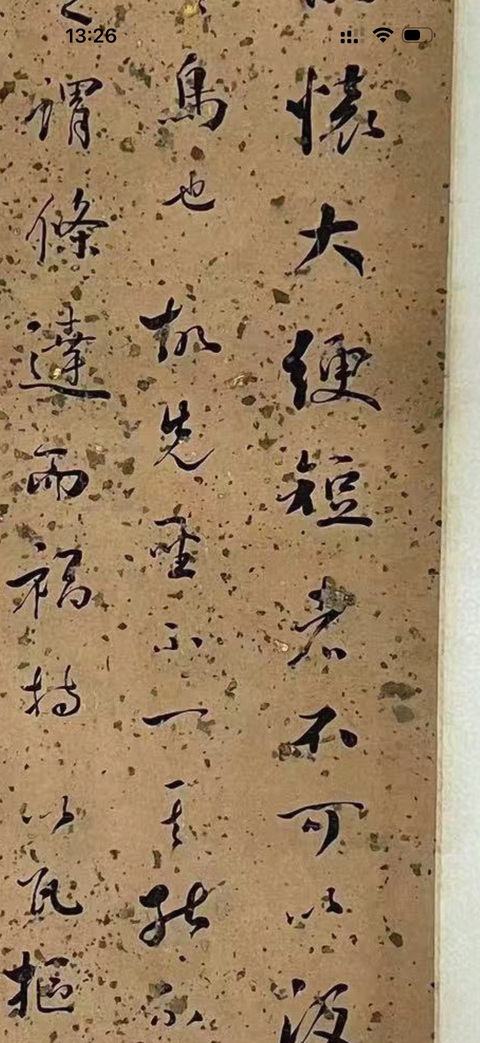 13:26
懷大綆短者不可以汲
鳥也故先聖不一其能不
之謂條達而福持以瓦摳